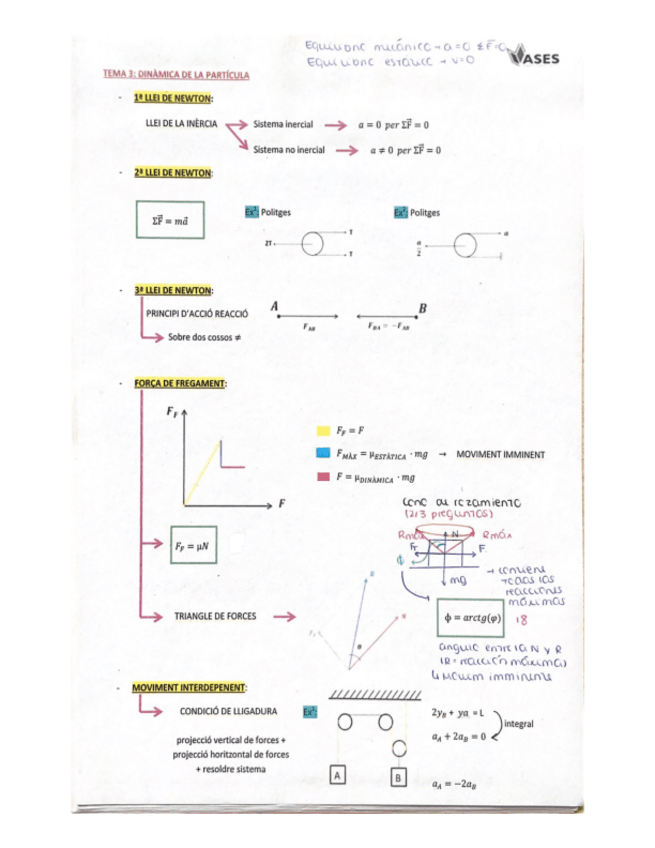 Equilibric mecánico → a=0 ΣF=0
Equilibric estatic → v=0
VASES
TEMA 3: DINÀMICA DE LA PARTÍCULA
- 1ª LLEI DE NEWTON:
LLEI DE LA INÈRCIA
Sistema inercial → a = 0 per ΣF⃗ = 0
Sistema no inercial → a ≠ 0 per ΣF⃗ = 0
- 2ª LLEI DE NEWTON:
ΣF⃗ = ma⃗
Ex¹: Politges
2T T
T
Ex²: Politges
a/2 a
- 3ª LLEI DE NEWTON:
PRINCIPI D'ACCIÓ REACCIÓ
Sobre dos cossos ≠
A B
F_AB F_BA = −F_AB
- FORÇA DE FREGAMENT:
F_F
F
F_F = F
F_MÀX = μ_ESTÀTICA · mg → MOVIMENT IMMINENT
F = μ_DINÀMICA · mg
F_F = μN
Cono de rozamiento
(2/3 preguntas)
Rmáx N Rmáx
F
mg
ϕ
→ contiene
todas las
reacciones
máximas
TRIANGLE DE FORCES
ϕ = arctg(φ)
18
angulo entre la N y R
(R= reacción máxima)
↳ Movim imminent
- MOVIMENT INTERDEPENENT:
CONDICIÓ DE LLIGADURA
Ex¹:
A B
2y_B + ya = L
a_A + 2a_B = 0
integral
a_A = −2a_B
projecció vertical de forces +
projecció horitzontal de forces
+ resoldre sistema